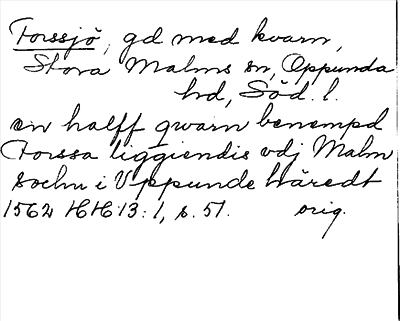 Forssjö, gd med kvarn,
Stora Malms sn, Oppunda
hd, Söd. l.
en halff qwarn benempd
Forssa liggiendis vdj Malm
sochn i Vppunde häredt
1562 HH 13: 1, s. 51. orig.